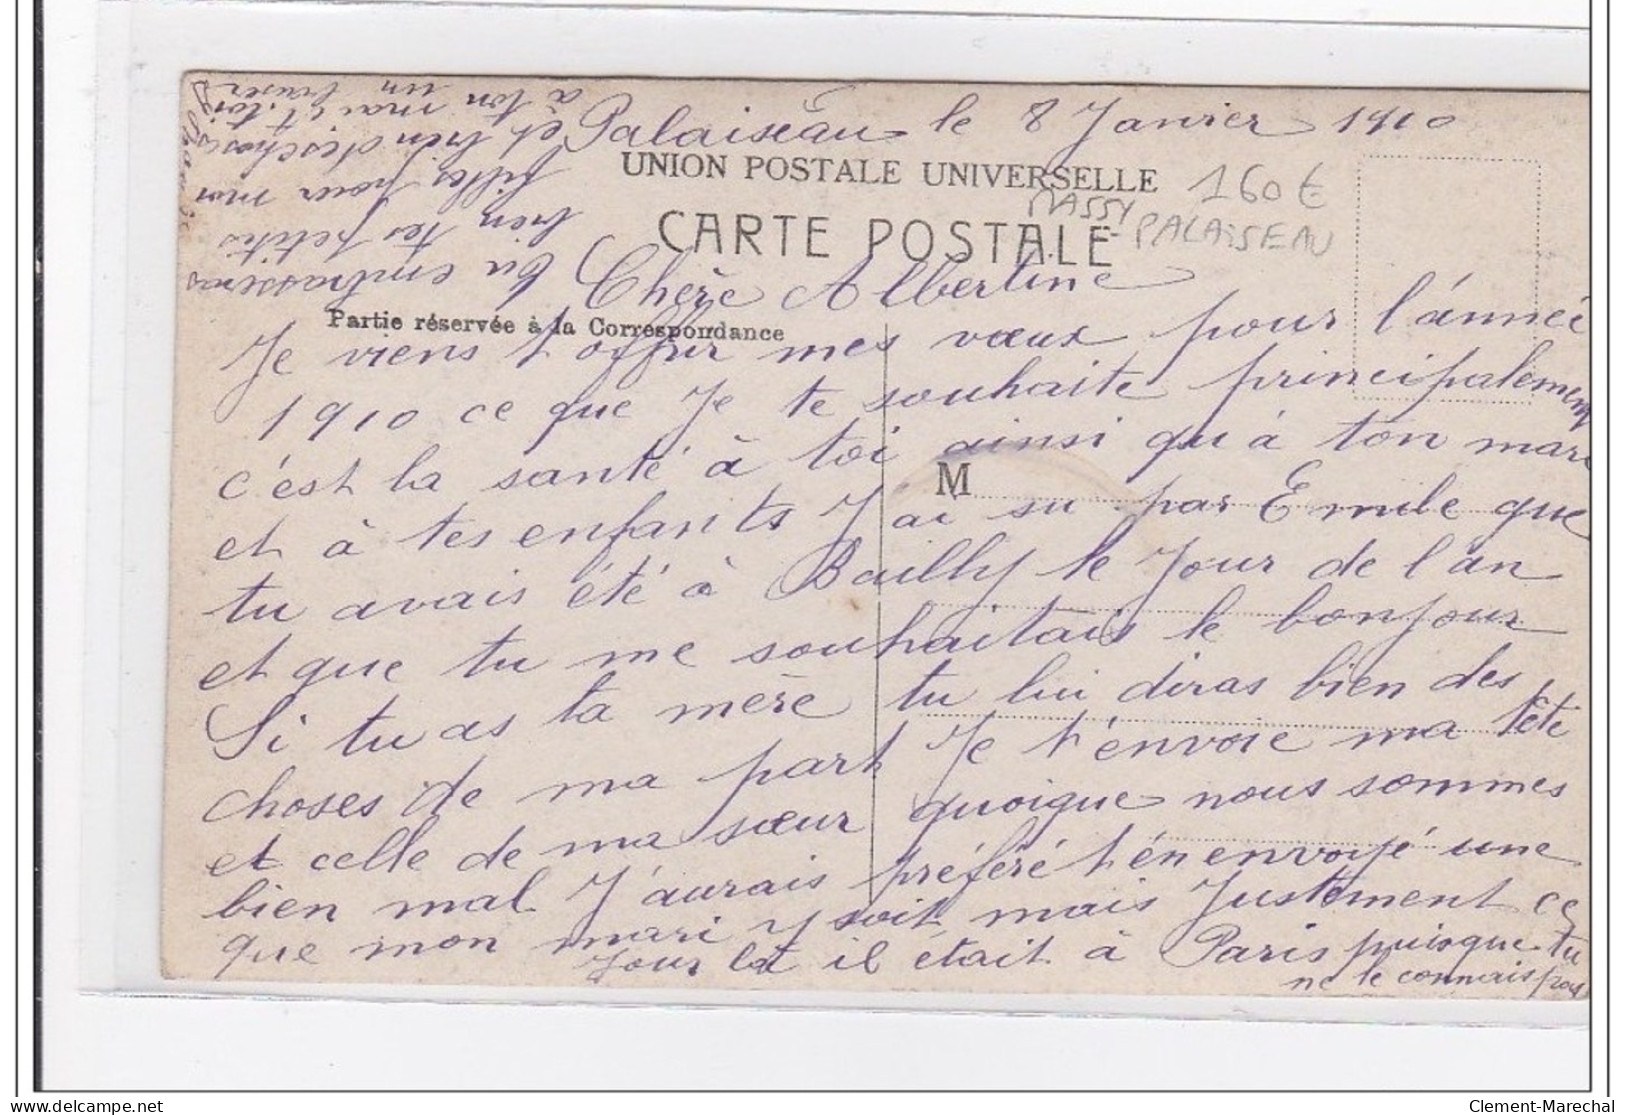 Palaiseau le 8 Janvier 1910
UNION POSTALE UNIVERSELLE
160€
MASSY
PALAISEAU
CARTE POSTALE
Chère Albertine
Partie réservée à la Correspondance
Je viens t'offrir mes vœux pour l'année
1910 ce que Je te souhaite principalement
c'est la santé à toi ainsi qu'à ton mari
M
et à tes enfants J'ai su par Emile que
tu avais été à Bailly le Jour de l'an
et que tu me souhaitais le bonjour
Si tu as ta mère tu lui diras bien des
choses de ma part Je t'envoie ma tête
et celle de ma sœur quoique nous sommes
bien mal. J'aurais préféré t'en envoyé une
que mon mari y soit mais Justement ce
Jour là il était à Paris puisque tu
ne le connais pas
tu embrasseras
bien tes petites
filles pour moi
et bien des choses
à ton mari et toi
un baiser
Clement-Marechal